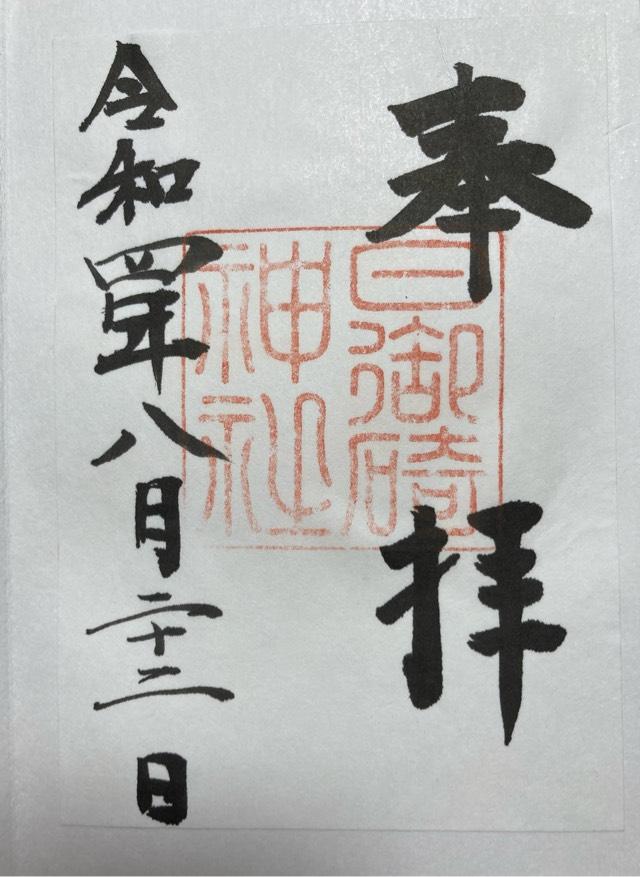 奉拝
日御碕
神社
令和四年八月二十二日